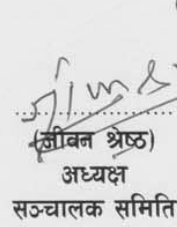 (जीवन श्रेष्ठ)
अध्यक्ष
सञ्चालक समिति